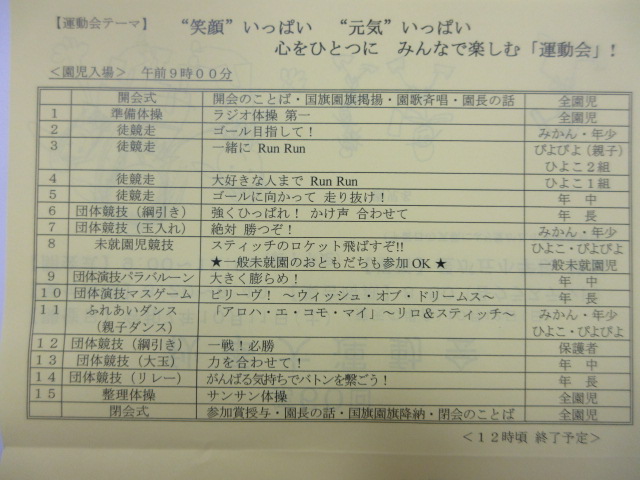 【運動会テーマ】　“笑顔”いっぱい　“元気”いっぱい
心をひとつに　みんなで楽しむ「運動会」！
＜園児入場＞　午前９時００分
開会式　開会のことば・国旗園旗掲揚・園歌斉唱・園長の話　全園児
１　準備体操　ラジオ体操 第一　全園児
２　徒競走　ゴール目指して！　みかん・年少
３　徒競走　一緒に Run Run　ぴよぴよ（親子）
ひよこ２組
４　徒競走　大好きな人まで Run Run　ひよこ１組
５　徒競走　ゴールに向かって 走り抜け！　年　中
６　団体競技（綱引き）　強くひっぱれ！ かけ声 合わせて　年　長
７　団体競技（玉入れ）　絶対 勝つぞ！　みかん・年少
８　未就園児競技　スティッチのロケット飛ばすぞ!!　ひよこ・ぴよぴよ
★一般未就園のおともだちも参加 OK ★　一般未就園児
９　団体演技パラバルーン　大きく膨らめ！　年　中
１０　団体演技マスゲーム　ビリーヴ！ ～ウィッシュ・オブ・ドリームス～　年　長
１１　ふれあいダンス　「アロハ・エ・コモ・マイ」～リロ＆スティッチ～　みかん・年少
（親子ダンス）　ひよこ・ぴよぴよ
１２　団体競技（綱引き）　一戦！必勝　保護者
１３　団体競技（大玉）　力を合わせて！　年　中
１４　団体競技（リレー）　がんばる気持ちでバトンを繋ごう！　年　長
１５　整理体操　サンサン体操　全園児
閉会式　参加賞授与・園長の話・国旗園旗降納・閉会のことば　全園児
＜１２時頃 終了予定＞